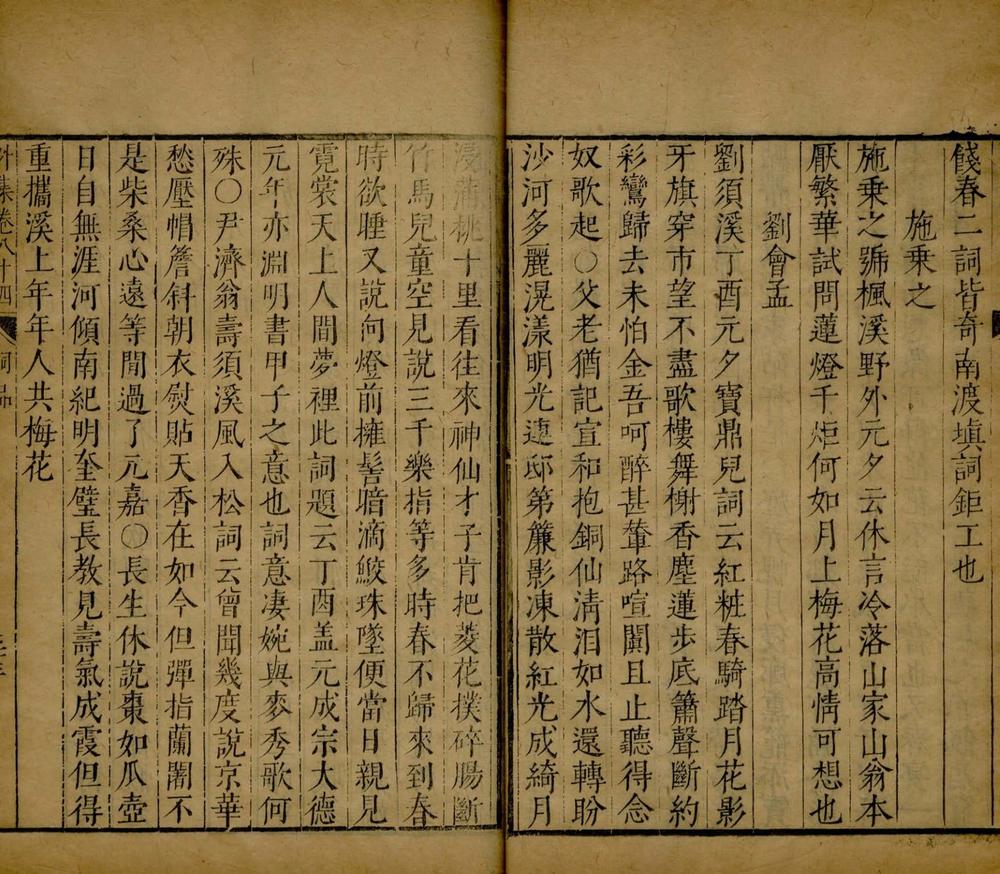 餞春二詞皆奇南渡塡詞鉅工也
施乗之
施乗之號楓溪野外元夕云休言冷落山家山翁本
厭繁華試問蓮燈千炬何如月上梅花高情可想也
劉會孟
劉須溪丁酉元夕寶鼎兒詞云紅粧春騎踏月花影
牙旗穿市望不盡歌樓舞榭香塵蓮步底簫聲斷約
彩鸞歸去未怕金吾呵醉甚輦路喧闐且止聽得念
奴歌起○父老猶記宣和抱銅仙淸泪如水還轉盼
沙河多麗滉漾明光連邸第簾影凍散紅光成綺月
浸 桃十里看往來神仙才子肯把菱花撲碎腸斷
竹馬兒童空見說三千樂指等多時春不歸來到春
時欲睡又說向燈前擁髻暗滴鮫珠墜便當日親見
霓裳天上人間夢裡此詞題云丁酉盖元成宗大德
元年亦淵明書甲子之意也詞意凄婉與麥秀歌何
殊○尹濟翁壽須溪風入松詞云曾聞幾度說京華
愁壓帽簷斜朝衣熨貼天香在如今但彈指蘭闍不
是柴桑心遠等閒過了元嘉○長生休說棗如瓜壺
日自無涯河傾南紀明奎璧長教見壽氣成霞但得
重攜溪上年年人共梅花
集卷八十四 詞品